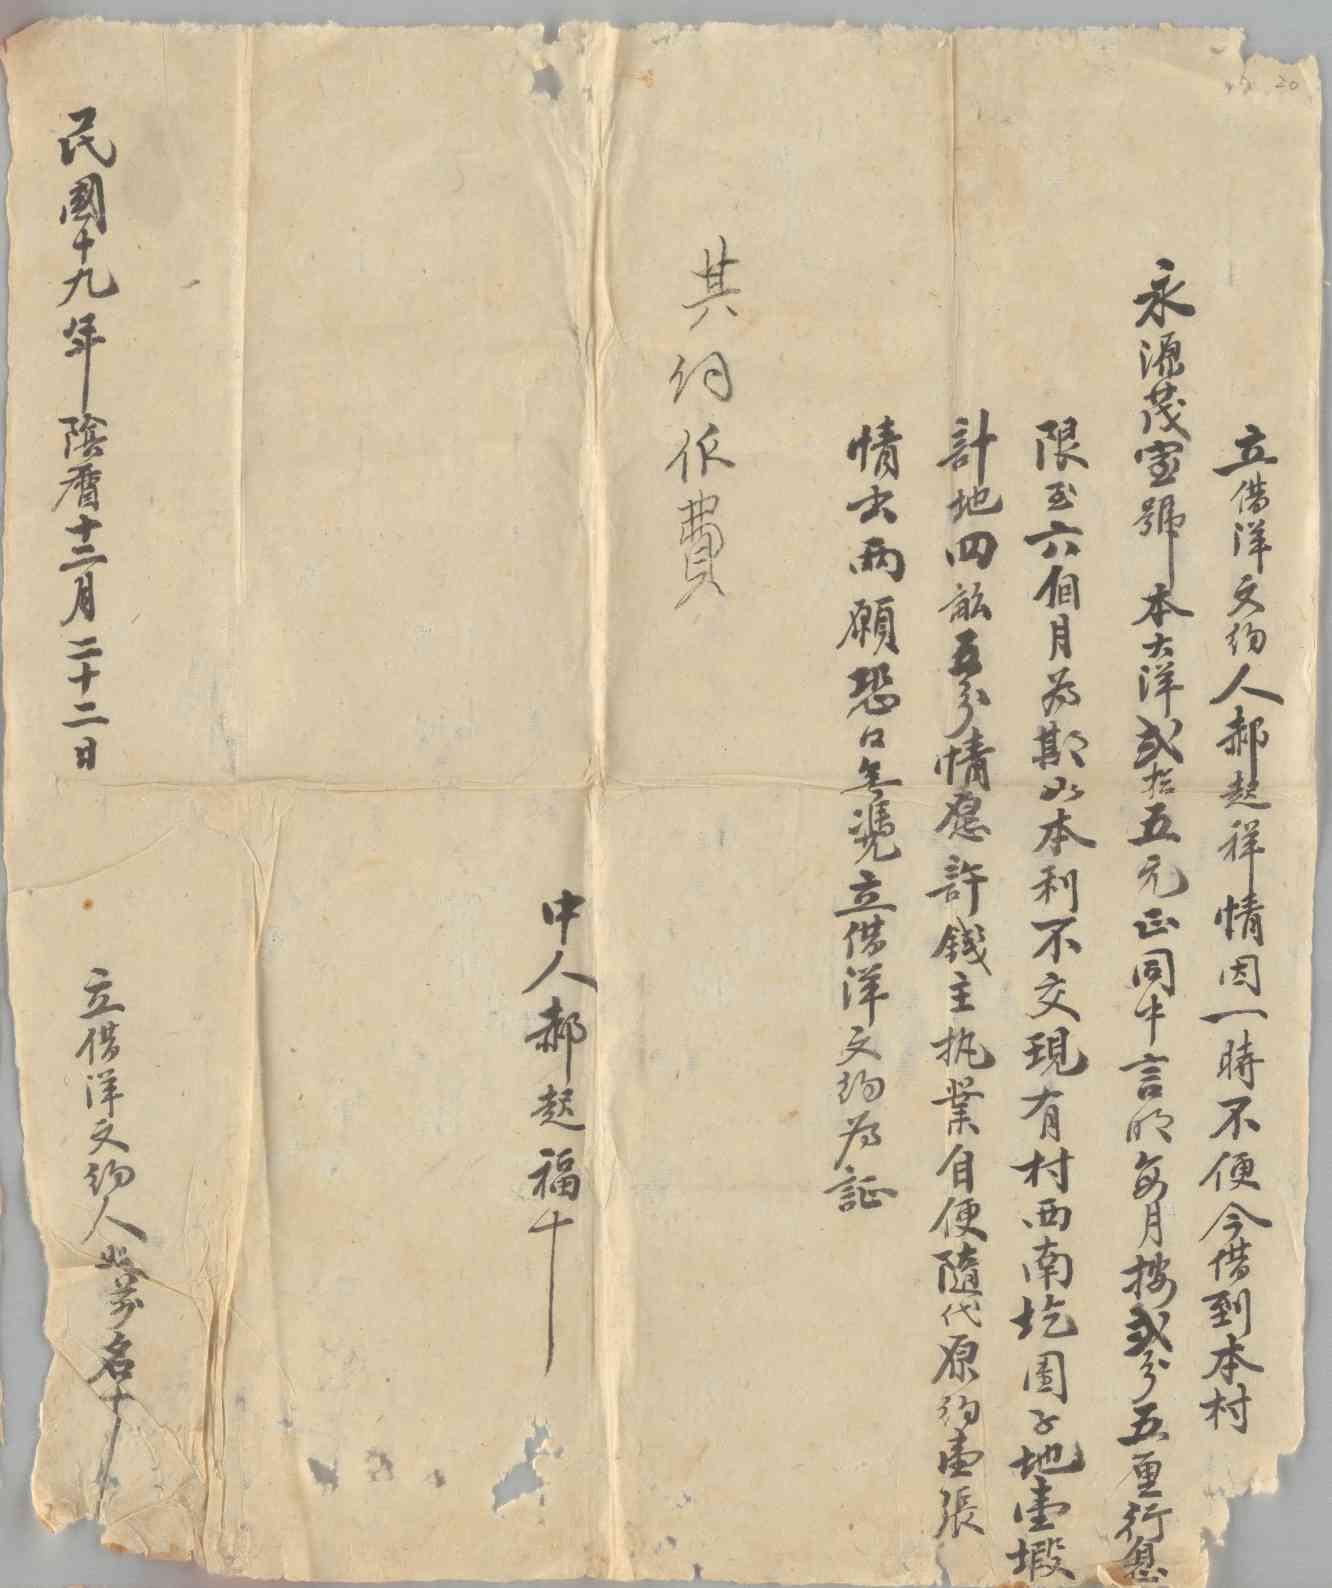 立借洋文約人郝起祥情因一時不便今借到本村
永源茂宝號本大洋弍拾五元正同中言明每月按弍分五厘行息
限至六個月為期如本利不交現有村西南圪圐子地壹塅
計地四畝五分情愿許錢主执業自便隨代原約壹張
情出两願恐口無凴立借洋文約為証
其約作費
中人郝起福十
民國十九年陰曆十二月二十二日
立借洋文約人照前名十
20